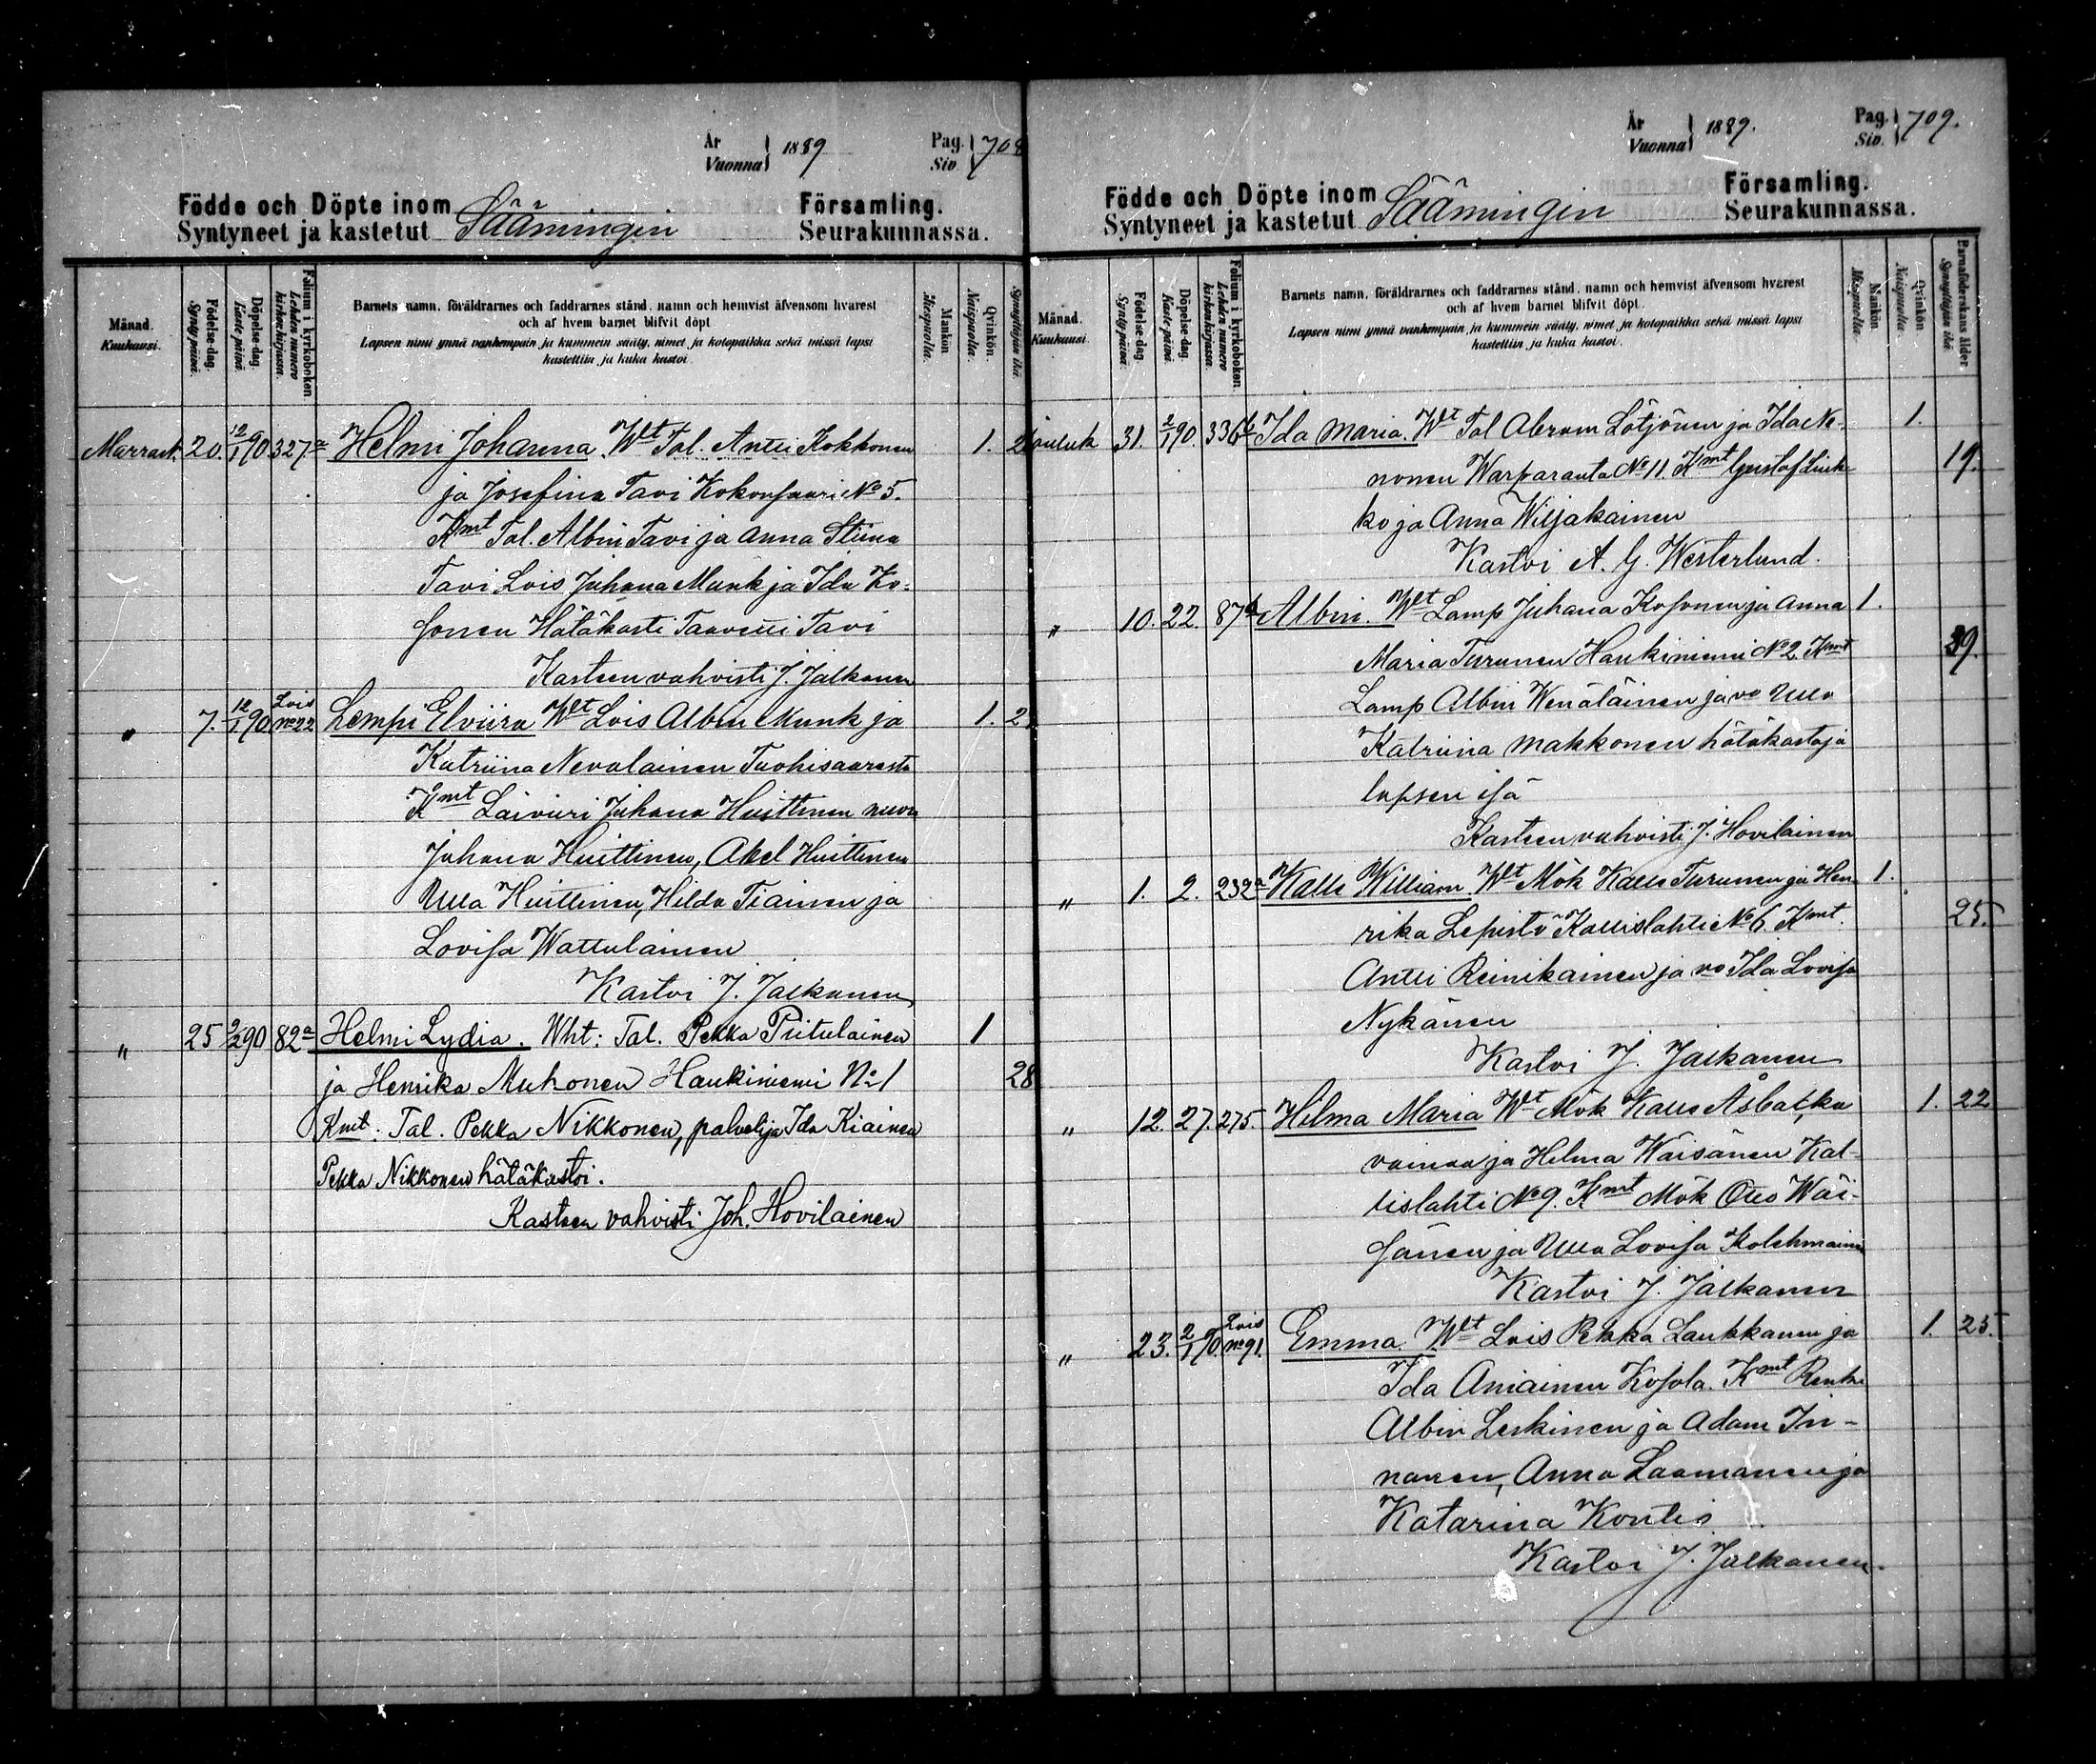 År
Vuonna } 1889 Pag. Siv. } 708
Födde och Döpte inom Församling.
Syntyneet ja kastetut Sääningin Seurakunnassa.
Månad. Kuukausi.
Födelse-dag. Synty-päivä.
Döpelse-dag Kaste-päivä.
Folium i kyrkoboken Lehden numero kirkonkirjassa.
Barnets namn, föräldrarnes och faddrarnes stånd, namn och hemvist äfvensom hvarest
och af hvem barnet blifvit döpt
Lapsen nimi ynnä vanhempain ja kummein sääty, nimet ja kotopaikka sekä missä lapsi
kastettiin ja kuka kastoi
Mankön Miespuolta.
Qvinkön. Naispuolta.
Synnyttäjän ikä.
Marrask. 20. 12/1 90 327a Helmi Johanna. Wht Tal. Antti Kokkonen 1. 2
ja Josefina Tavi Kokonsaari No 5.
Kmt Tal. Albin Tavi ja Anna Stiina
Tavi Lois Juhana Munk ja Ida Ko-
sonen Hätäkasti Taavetti Tavi
Kasteen vahvisti J. Jalkanen
" 7. 12/1 90 Lois no 22 Lempi Elviira Wht Lois Albin Munk ja 1. 2
Katriina Nevalainen Tuohisaaresta
Kmt Laivuri Juhana Huittinen nuor
Juhana Huittinen, Akel Huittinen
Ulla Huittinen, Hilda Tiainen ja
Lovisa Wattulainen
Kastoi J. Jalkanen
" 25 2/2 90 82a Helmi Lydia. Wht: Tal. Pekka Piitulainen 1
ja Henrika Muhonen Haukiniemi No 1 28
Kmt: Tal. Pekka Nikkonen, palvelija Ida Kiainen
Pekka Nikkonen hätäkastoi.
Kasteen vahvisti Joh. Hovilainen
År
Vuonna } 1889. Pag. Siv. } 709.
Födde och Döpte inom Församling.
Syntyneet ja kastetut Sääningin Seurakunnassa.
Månad. Kuukausi.
Födelse-dag. Synty-päivä.
Döpelse-dag Kaste-päivä.
Folium i kyrkoboken Lehden numero kirkonkirjassa.
Barnets namn, föräldrarnes och faddrarnes stånd, namn och hemvist äfvensom hvarest
och af hvem barnet blifvit döpt.
Lapsen nimi ynnä vanhempain ja kummein sääty, nimet ja kotopaikka sekä missä lapsi
kastettiin ja kuka kastoi.
Mankön Miespuolta.
Qvinkön Naispuolta.
Barnaföderskans ålder Synnyttäjän ikä
Jouluk 31. 2/1 90. 336b Ida Maria. Wht Tal Abram Lötjönen ja Ida Ne- 1.
nonen Warparanta No 11. Kmt Gustaf 19.
ko ja Anna Wiljakainen
Kastoi A. G. Westerlund.
" 10. 22. 87 Albin. Wht Lamp Juhana Kosonen ja Anna 1.
Maria Turunen Haukiniemi No 2 Kmt 39.
Lamp Albin Wenäläinen ja vo Ulla
Katriina Makkonen hätäkastaja
lapsen isä
Kasteen vahvisti J. Hovilainen
" 1. 2. 232a Kalle William. Wht Mök Kalle Turunen ja Hen- 1.
rika Lepistö Kallislahti No 6. Kmt. 25.
Antti Reinikainen ja vo Ida Lovisa
Nykänen
Kastoi J. Jalkanen
" 12. 27. 275. Hilma Maria Wht Mök Kalle Åsbacka 1. 22
vainaa ja Helma Wäisänen Kal-
lislahti No 9. Kmt Mök Otto Wäi-
sänen ja Ulla Lovisa Kolehmainen
Kastoi J. Jalkanen
" 23. 2/1 90. Lois no 91. Emma. Wht Lois Pekka Laukkanen ja 1. 25.
Ida Aniainen Kosola. Kmt Renki
Albin Leskinen ja Adam In-
nanen, Anna Laamanen ja
Katarina Kontis
Kastoi J. Jalkanen.